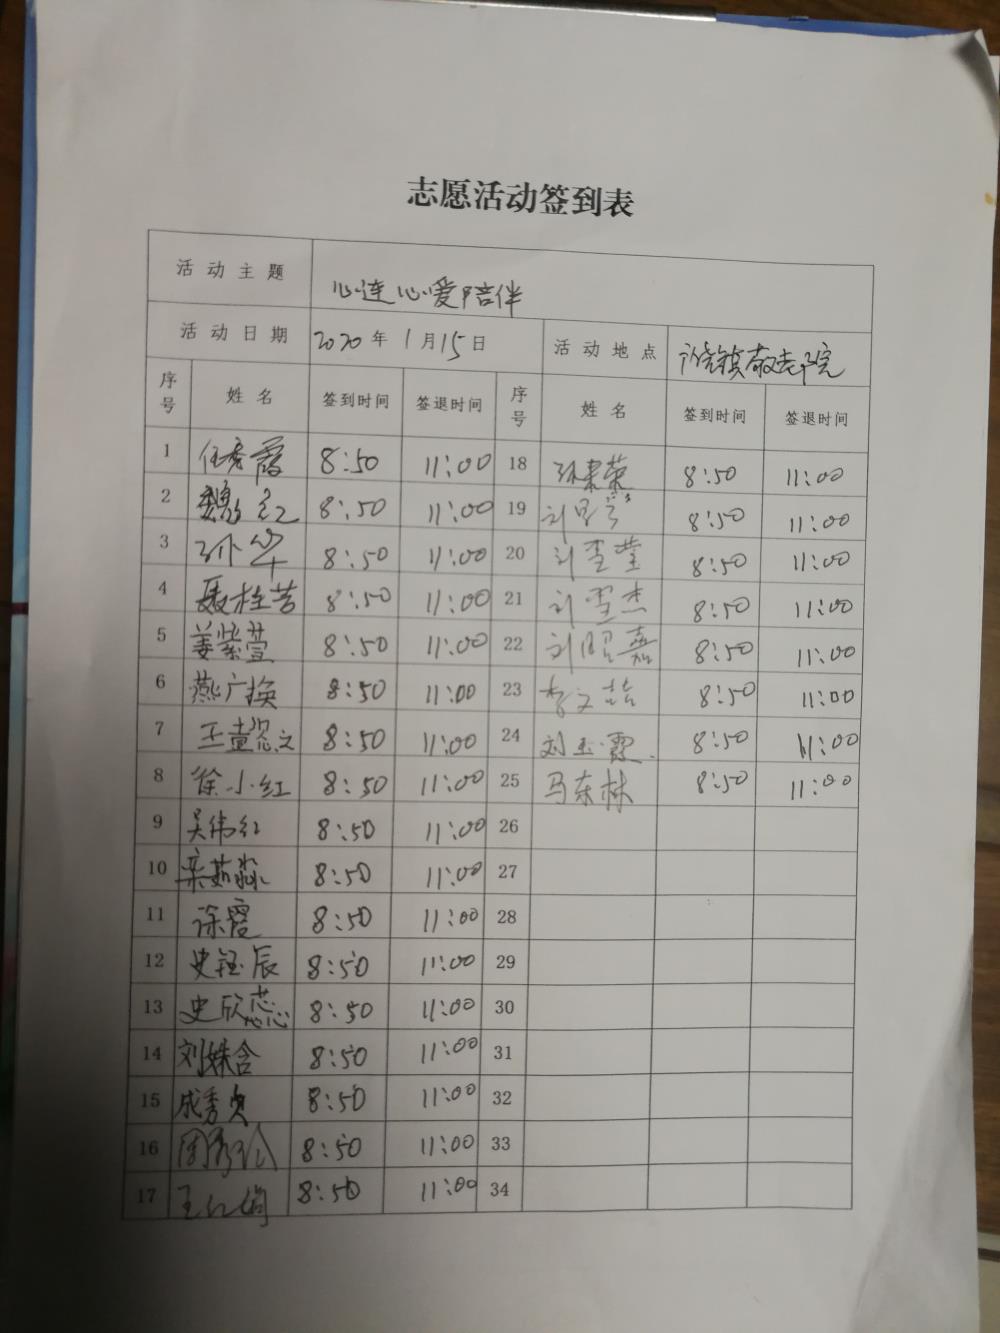 志愿活动签到表
活动主题 心连心爱陪伴
活动日期 2020年1月15日 活动地点 镇敬老院
序号 姓名 签到时间 签退时间 序号 姓名 签到时间 签退时间
1 任秀霞 8:50 11:00 18 孙素荣 8:50 11:00
2 魏红 8:50 11:00 19 刘 8:50 11:00
3 孙华 8:50 11:00 20 刘雪莹 8:50 11:00
4 聂桂芳 8:50 11:00 21 刘雪杰 8:50 11:00
5 姜紫萱 8:50 11:00 22 刘明嘉 8:50 11:00
6 燕广换 8:50 11:00 23 李文喆 8:50 11:00
7 王 文 8:50 11:00 24 刘玉霞 8:50 11:00
8 徐小红 8:50 11:00 25 马东林 8:50 11:00
9 吴伟红 8:50 11:00 26
10 栾茹淼 8:50 11:00 27
11 徐霞 8:50 11:00 28
12 史钰辰 8:50 11:00 29
13 史欣蕊 8:50 11:00 30
14 刘姝含 8:50 11:00 31
15 成秀贞 8:50 11:00 32
16 周秀 8:50 11:00 33
17 王红娟 8:50 11:00 34